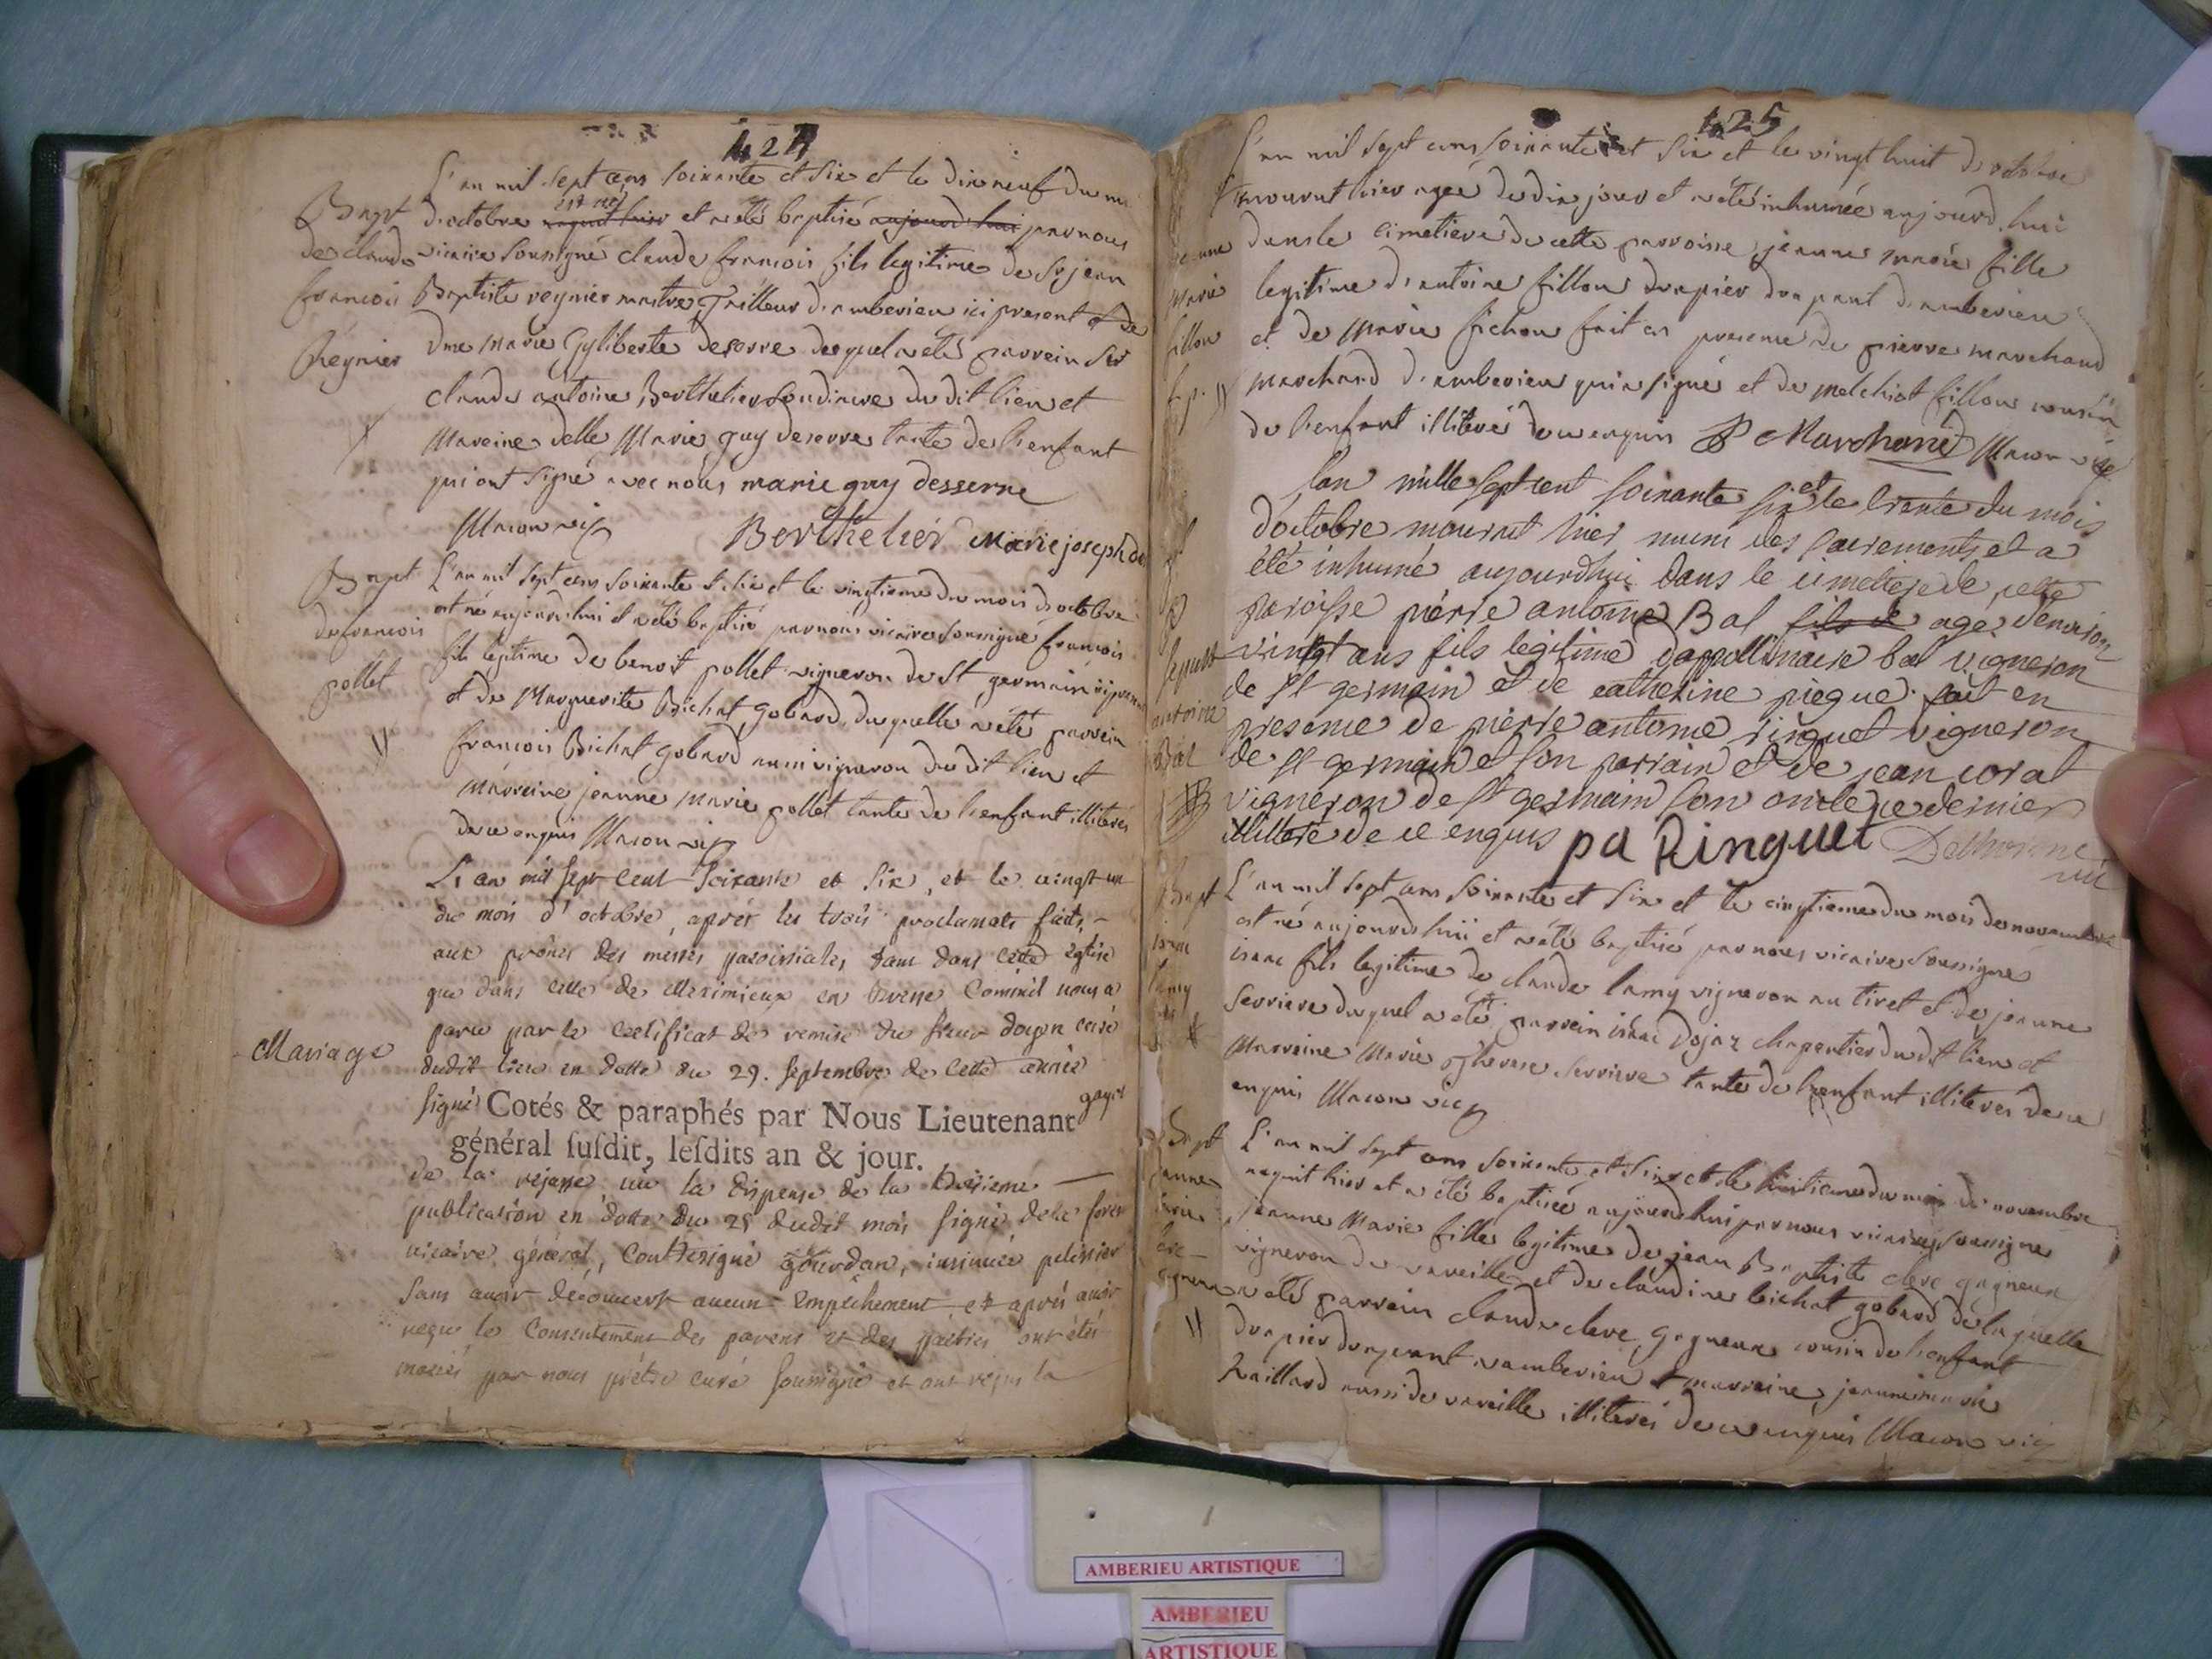 424
L'an mil sept cens soixante et six et le dix neuf du
Bapt d'octobre est né naquit hier et a été baptisé aujourd'hui par nous
de claude vicaire soussigné claude francois fils legitime de Sr jean
francois Baptiste reynier maitre Tailleur d'amberieu ici present et de
Reynier Dme Marie Gyliberte deserre duquel a été parrein Sr
claude antoine Berthelier dudit lieu et
Mareine delle Marie guy deserre tante de l'enfant
qui ont signé avec nous marie guy desserre
Macon vic Berthelier Marie joseph de
Bapt L'an mil sept cens soixante et six et le vingtieme du mois d'octobre
est né aujourd'hui et a été baptisé par nous vicaire soussigné francois
de francois fils legitime de benoit pollet vigneron de St germain
pollet et de Marguerite Bichat gobard duquelle a été parrein
francois Bichat gobard aussi vigneron du dit lieu et
Marreine jeanne Marie pollet tante de l'enfant illiterés
de ce enquis Macon vic
L'an mil sept cent soixante et six, et le vingt un
du mois d'octobre, aprés les trois proclamats faits,
aux prônes des messes paroissiales tant dans cette église
que dans celle de Meximieux en Bresse comm'il nous a
paru par le certificat de remise du sieur doyen curé
Mariage dudit lieu en datte du 29. septembre de cette année
signé gayet
Cotés & paraphés par Nous Lieutenant
général susdit, lesdits an & jour.
de la vu la dispense de la troisieme
publication en datte du 25 dudit mois signé
vicaire général, contresigné gourdan, insinuée pelissier
sans avoir découvert aucun empêchement et aprés avoir
reçu le consentement des parens et des parties ont étés
mariés par nous prêtre curé soussigné et ont reçus la
425
L'an mil sept cens soixante et six et le vingt huit d'octobre
mourut hier agée de dix jours et a été inhumée aujourd'hui
jeanne dans le cimetiere de cette parroisse jeanne marie fille
Marie legitime d'antoine fillon drapier drapant d'amberieu
fillon et de Marie fichon fait en presence de pierre marchand
marchand d'amberieu qui a signé et de melchiot fillon cousin
de l'enfant illiteré de ce enquis P Marchand Macon vic
L'an mille sept cent soixante six et le trente du mois
d'octobre mourut hier muni des sacrements et a
été inhumé aujourdhui dans le cimetiere de cette
paroisse pierre antoine Bal fils de agé d'environ
vingt ans fils legitime d'appollinaire bal vigneron
de st germain et de catherine piegue. fait en
antoine presence de pierre antoine ringuet vigneron
Bal de st germain et son parrain et de jean corat
vigneron de st germain son oncle ce dernier
illiteré de ce enquis pa Ringuet Delhorme vic
Bapt L'an mil sept cens soixante et six et le cinqtieme du mois de novembre
est né aujourdhui et a été baptisé par nous vicaire soussigné
isaac isaac fils legitime de claude lamy vigneron au tiret et de jeanne
lamy serriere duquel a été parrein isaac Dojaz charpentier du dit lieu et
Marreine Marie therese serriere tante de l'enfant illiterés de ce
enquis Macon vic
Bapt L'an mil sept cens soixante et six et le huitieme du mois de novembre
jeanne naquit hier et a été baptisée aujourdhui par nous vicaire soussigné
Marie jeanne Marie fille legitime de jean Baptiste cleve gagneux
vigneron de vareilles et de claudine bichat gobard de laquelle
a été parrein claude cleve gagneux cousin de l'enfant
drapier drapant d'amberieu et marreine jeanne marie
aussi de vareille illiterés de ce enquis Macon vic
AMBERIEU ARTISTIQUE
AMBERIEU
ARTISTIQUE